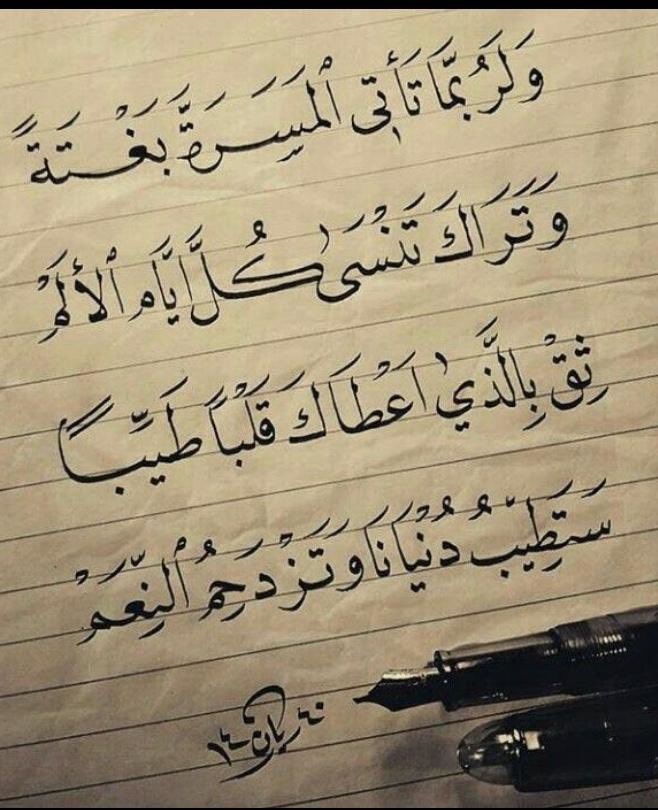 وَلَرُبَّمَا تَأتِى ٱلْمَسَرَةَّ بَغْتَةً
وَتَرَاكَ تَنْسَى كُلَّ ايَّامِ ٱلأَلَمْ
ثِقْ بِالَّذي اعْطَاكَ قَلْبَاً طَيِّبَاً
سَتَطِيّبُ دُنْيَانَا وَتَزْدَحِمُ ٱلنِّعَمْ